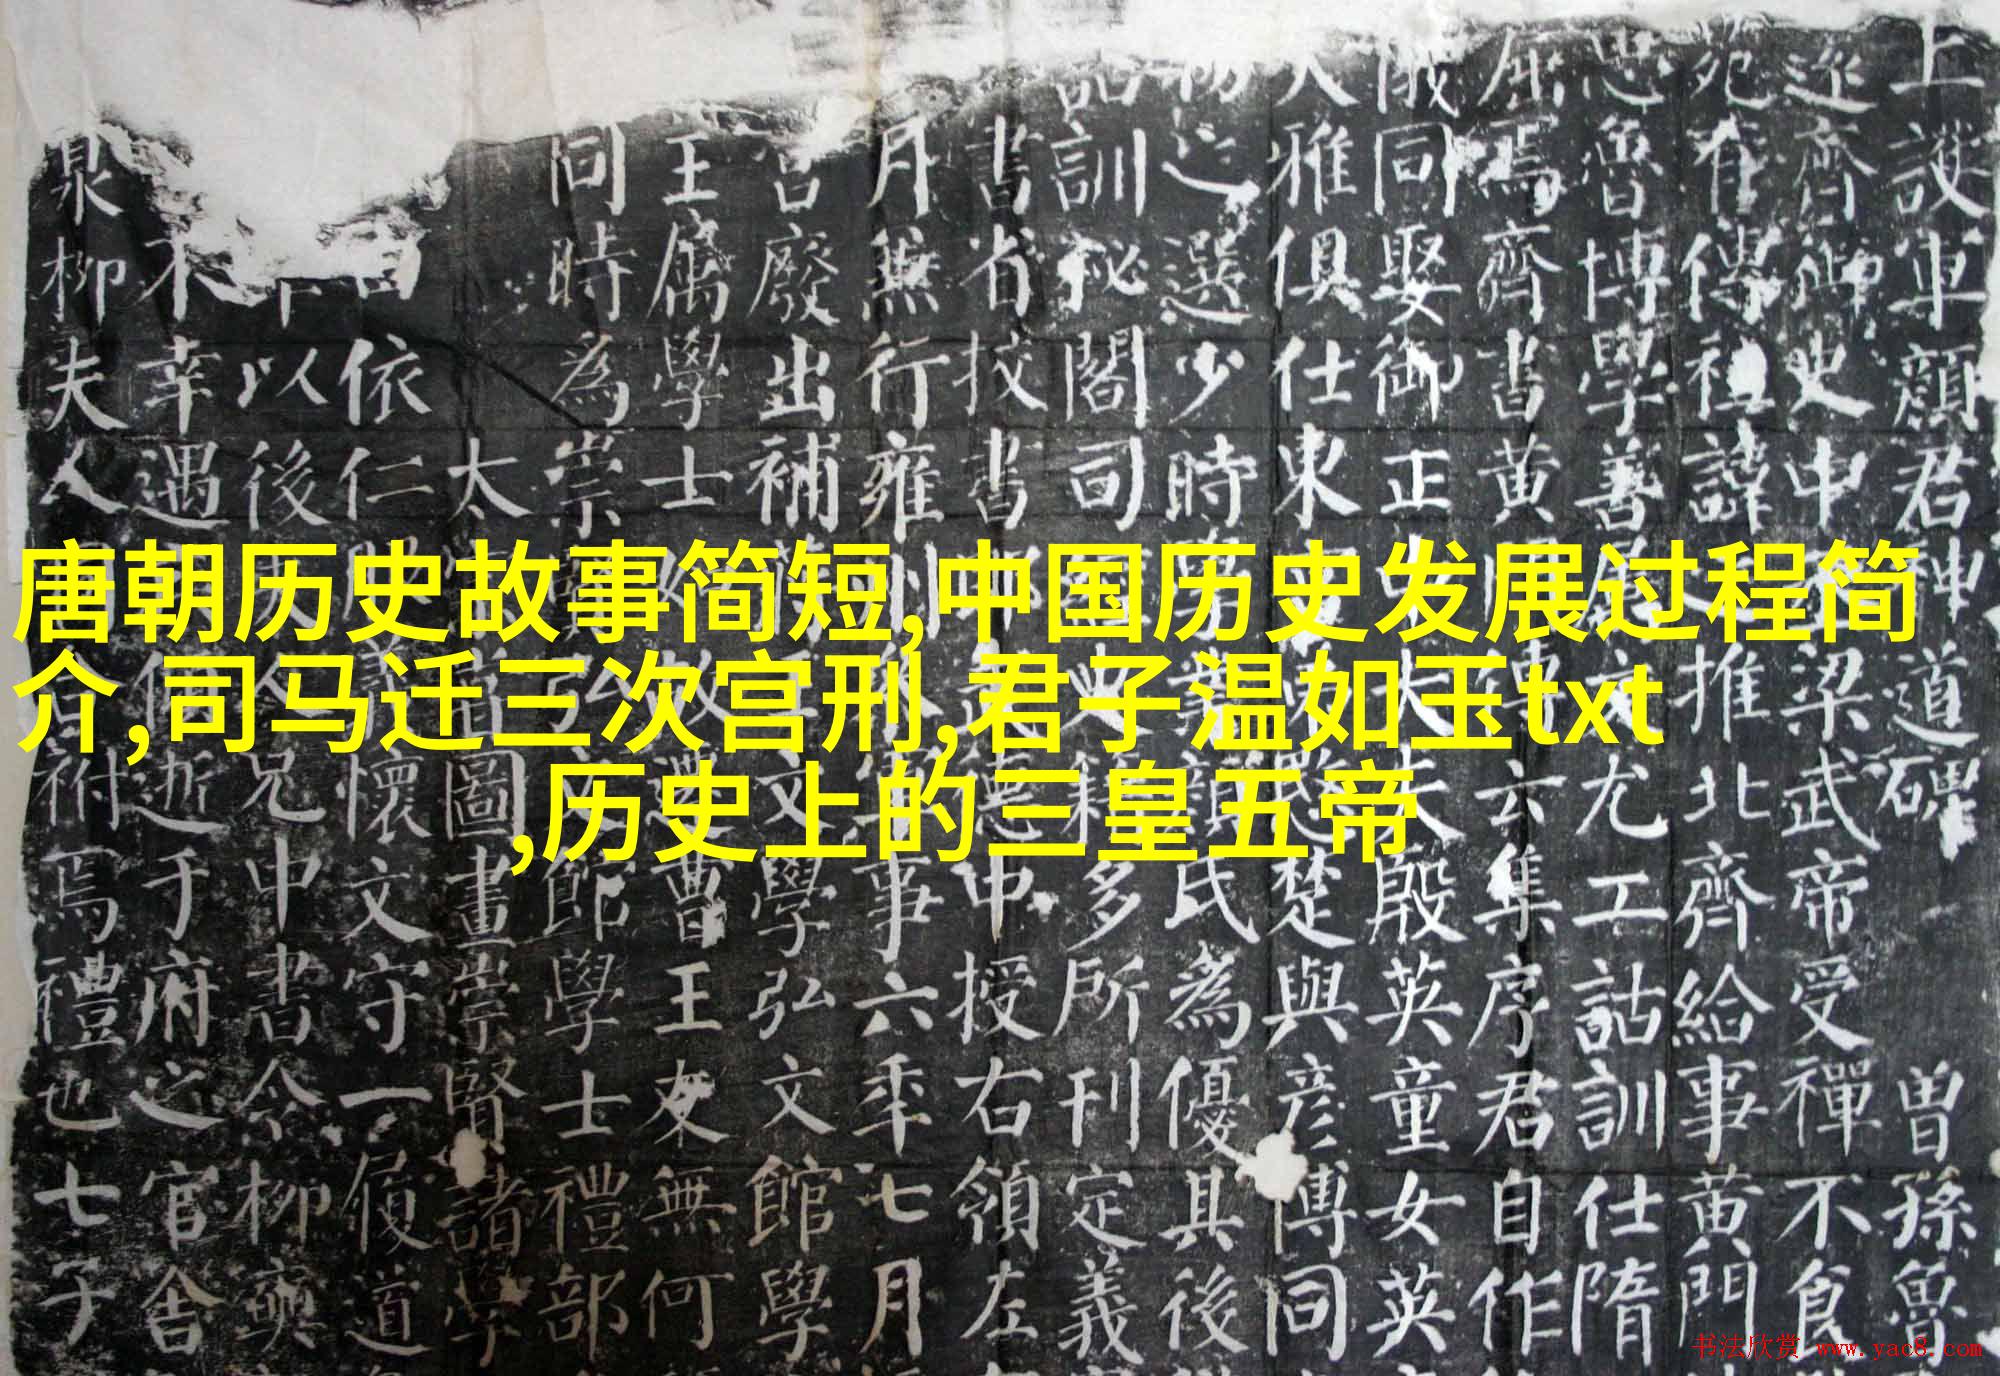 唐朝历史故事简短,中国历史发展过程简
介,司马迁三次宫刑,君子温如玉txt
,历史上的三皇五帝
上護軍顔君神道碑曽孫魯
逐齊御史中梁武帝受禪不食
有傳祖諱推北齊給事黄門
思魯博學善尤工詁訓仕隋
焉齊書黄云集序君自作
儀同娶御正大夫殷英童女英
人雅俱仕東楚與彦博同
之選少時顔氏為優其後
訓秘閣司史籍多所刊定義
書省挍書中授右領左
月無行雍事六年七月
宫廢出補文學弘文館學
王属學士曹王友無何
同時為崇館學士禮部
太圖畫崇賢諸學
依仁服義懷文守一履道
以後兄中書令柳奭
不幸遇逝于府之官舍
泉柳夫人祔焉禮也七子
书法欣赏 www.yac8.com